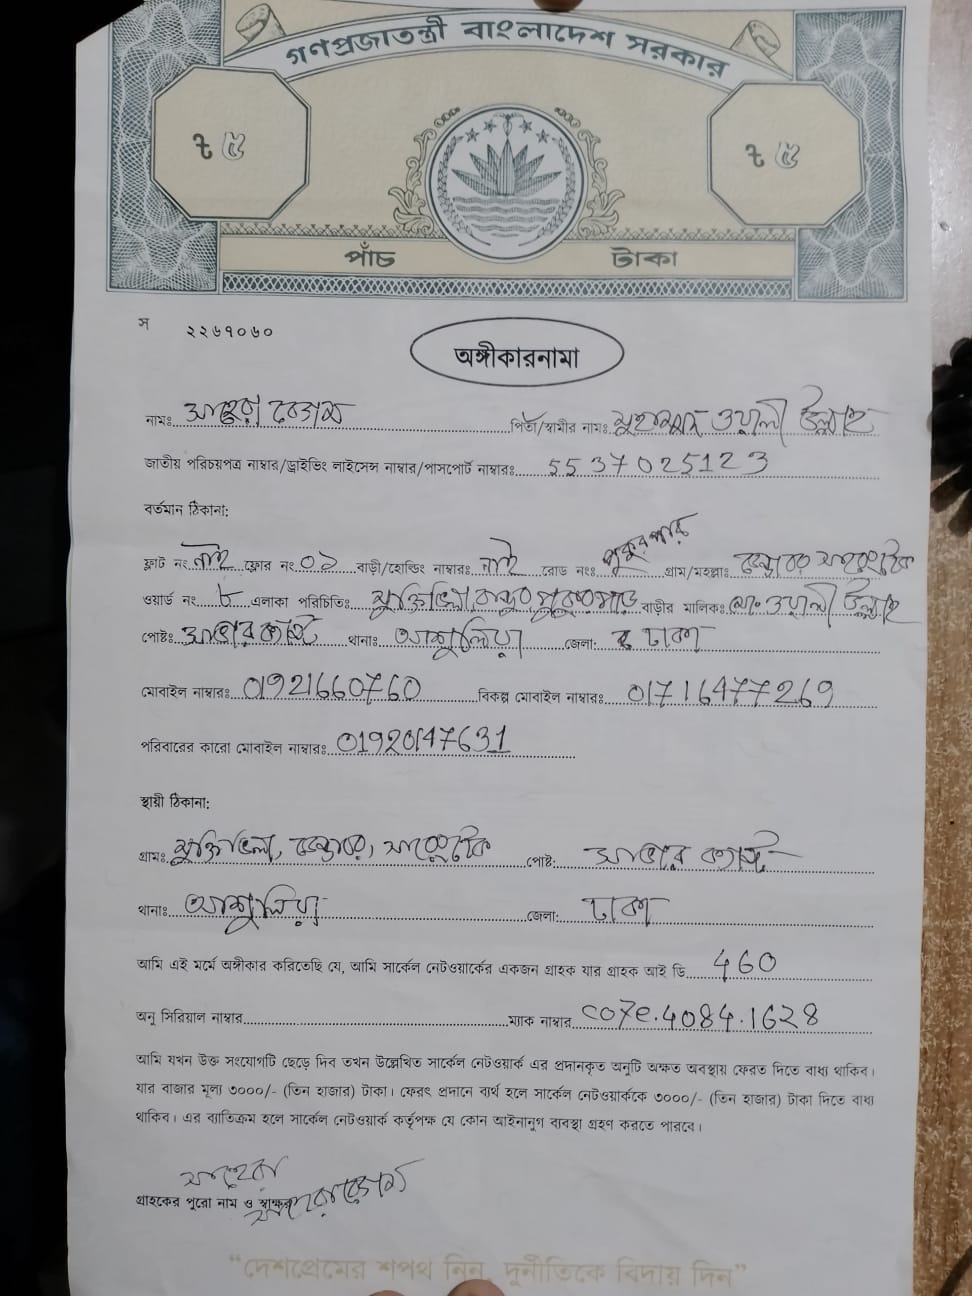 গণপ্রজাতন্ত্রী বাংলাদেশ সরকার
৳ ৫ ৳ ৫
পাঁচ টাকা
স ২২৬৭০৬০
অঙ্গীকারনামা
নামঃ সাহেরা বেগম পিতা/স্বামীর নামঃ মুহাম্মদ ওয়ালী উল্লাহ
জাতীয় পরিচয়পত্র নাম্বার/ড্রাইভিং লাইসেন্স নাম্বার/পাসপোর্ট নাম্বারঃ 5537025123
বর্তমান ঠিকানা:
ফ্লাট নং নাই ফ্লোর নং ০১ বাড়ী/হোল্ডিং নাম্বারঃ নাই রোড নংঃ পুকুরপাড় গ্রাম/মহল্লাঃ
ওয়ার্ড নং ৮ এলাকা পরিচিতিঃ বাড়ীর মালিকঃ মোঃ ওয়ালী উল্লাহ
পোষ্টঃ থানাঃ আশুলিয়া জেলা: ঢাকা
মোবাইল নাম্বারঃ 01921660760 বিকল্প মোবাইল নাম্বারঃ 01716477269
পরিবারের কারো মোবাইল নাম্বারঃ 01920147631
স্থায়ী ঠিকানা:
গ্রামঃ পোষ্ট:
থানাঃ আশুলিয়া জেলা: ঢাকা
আমি এই মর্মে অঙ্গীকার করিতেছি যে, আমি সার্কেল নেটওয়ার্কের একজন গ্রাহক যার গ্রাহক আই ডি 460
অনু সিরিয়াল নাম্বার ম্যাক নাম্বার c07e.4084.1628
আমি যখন উক্ত সংযোগটি ছেড়ে দিব তখন উল্লেখিত সার্কেল নেটওয়ার্ক এর প্রদানকৃত অনুটি অক্ষত অবস্থায় ফেরত দিতে বাধ্য থাকিব।
যার বাজার মূল্য ৩০০০/- (তিন হাজার) টাকা। ফেরৎ প্রদানে ব্যর্থ হলে সার্কেল নেটওয়ার্ককে ৩০০০/- (তিন হাজার) টাকা দিতে বাধ্য
থাকিব। এর ব্যাতিক্রম হলে সার্কেল নেটওয়ার্ক কর্তৃপক্ষ যে কোন আইনানুগ ব্যবস্থা গ্রহণ করতে পারবে।
সাহেরা
গ্রাহকের পুরো নাম ও স্বাক্ষর
“দেশপ্রেমের শপথ নিন, দুর্নীতিকে বিদায় দিন”